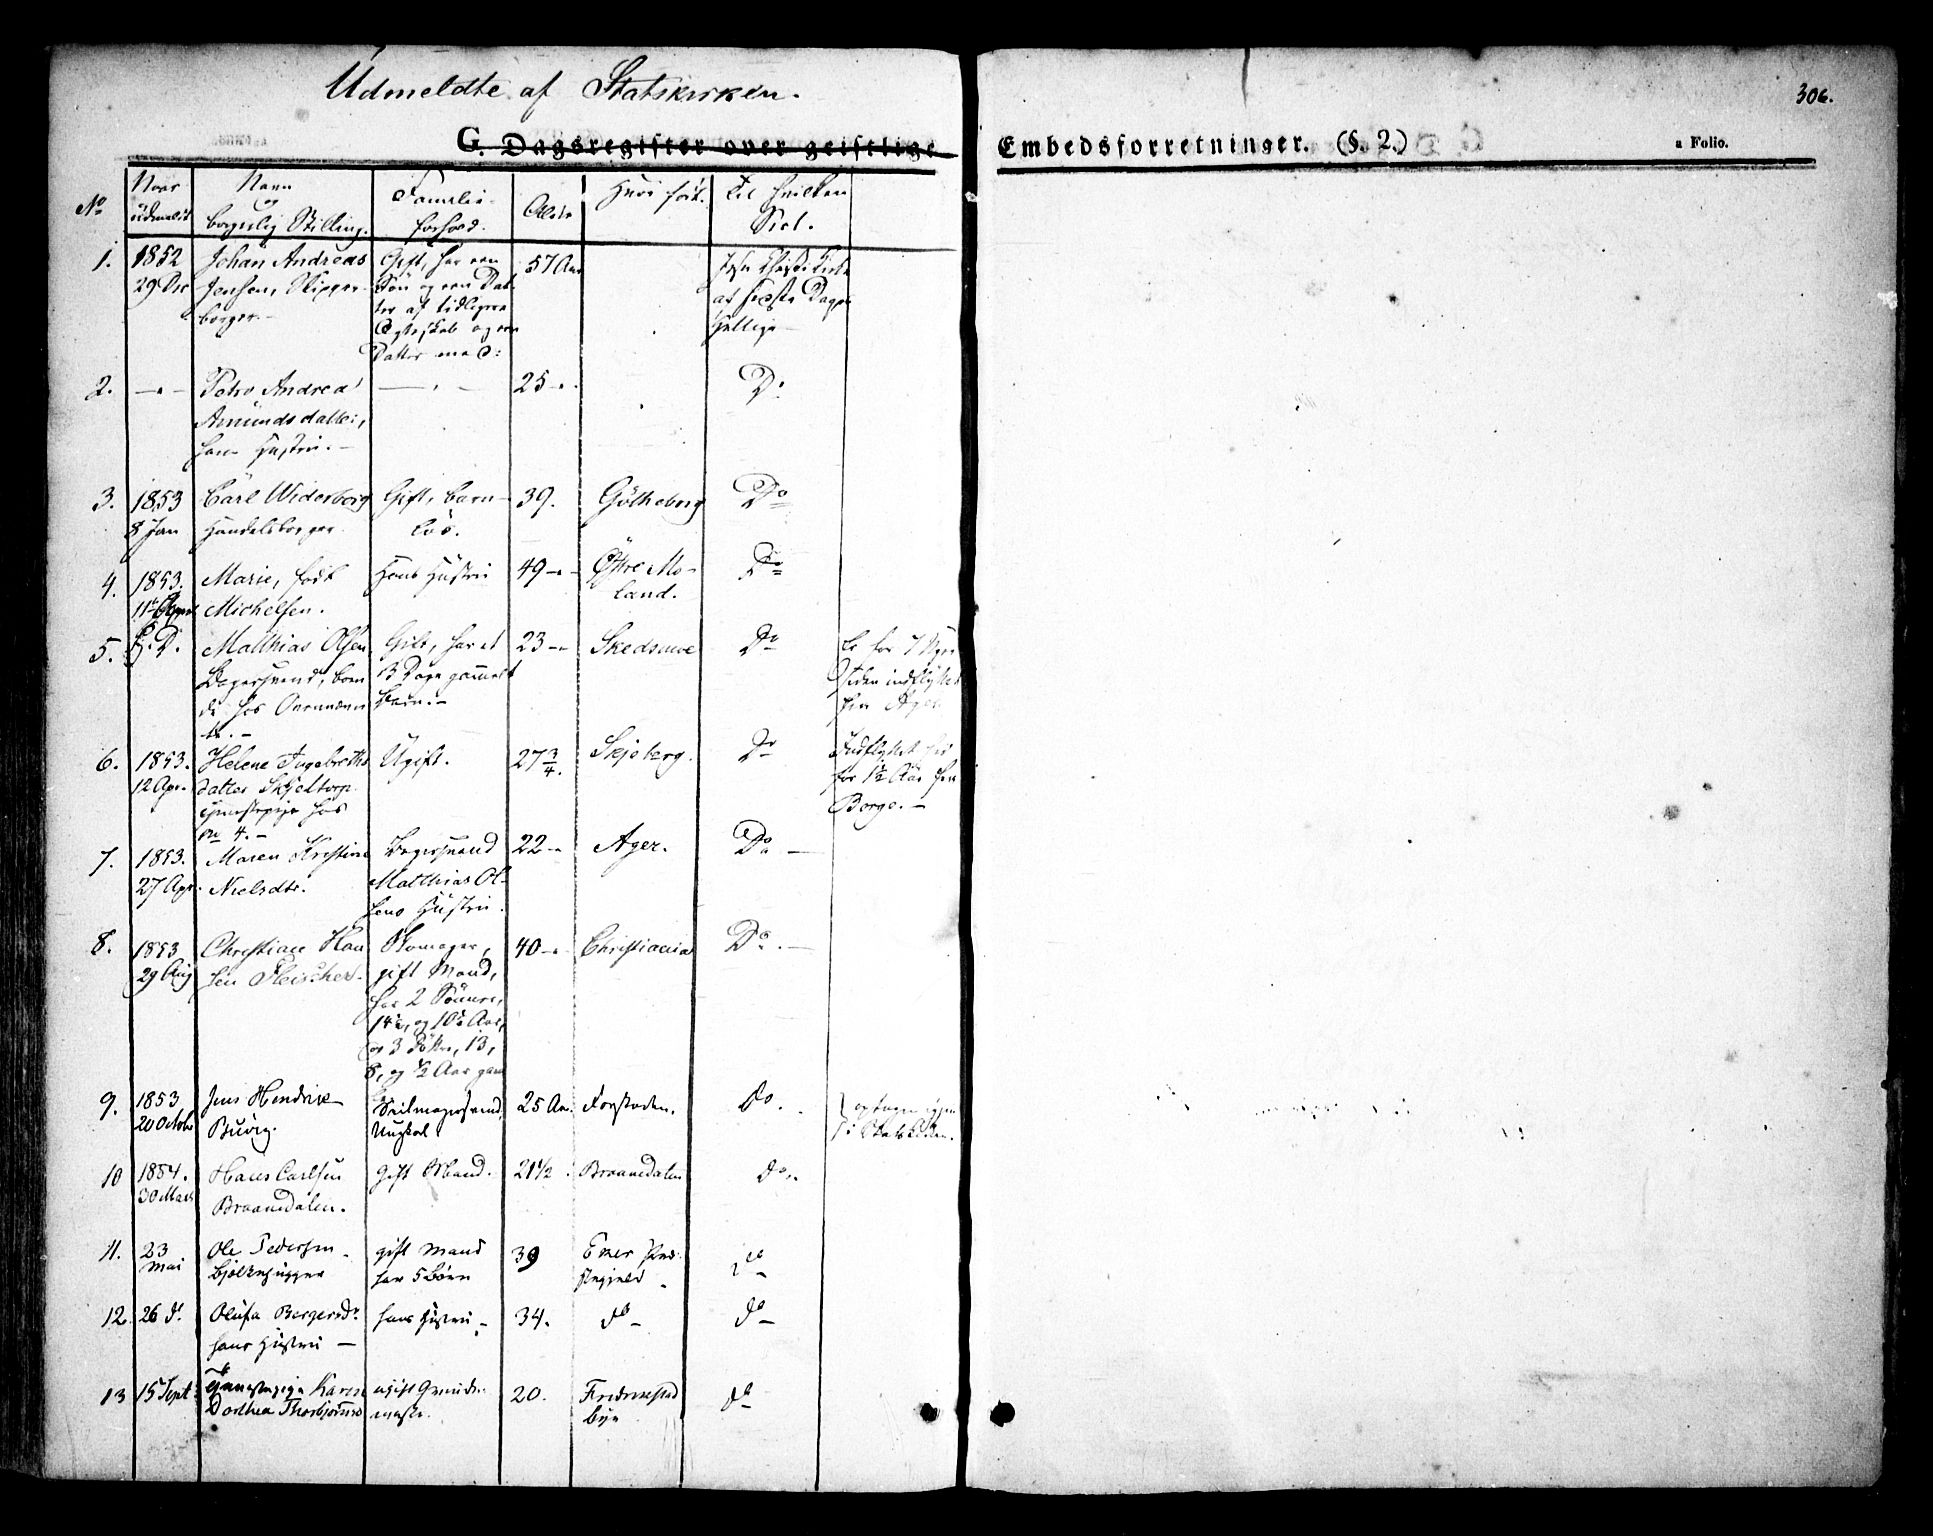 Udmeldte af Statskirken.
306.
G. Dagsregister over geistlige Embedsforretninger. (§. 2.)
a Folio.
No
Naar udmeldt
Navn og borgerlig Stilling.
Familieforhold.
Alder
Hvor født.
Til hvilken Sect.
1. 1852 29 Dec
Johan Andreas Jensen, Skipperborger.
Gift, har en Søn og en Datter af tidligere Ægteskab og en Datter med
57 Aar
Jesu Christi Kirke af Sidste Dages Hellige
2.
Petro Andrea Amundsdatter, hans Hustru.
25
Do
3. 1853 8 Jan
Carl Widerborg Handelsborger.
Gift, barnløs.
39.
Götheborg
Do
4. 1853. 11te April
Marie, født Michelsen.
Hans Hustru
49
Østre Moland.
Do
5. D.
Matthias Olsen Bagersvend, boende hos
Gift, har et 3 Dage gammelt Barn.
23
Skedsmoe
Do
Er for 7 siden indflyttet fra Ager
6. 1853. 12 Apr.
Helene Ingebrethsdatter Skjeltorp tjenestepige hos No 4.
Ugift.
27 3/4.
Skjeberg.
Do
Indflyttet her for 1½ Aar fra Borge.
7. 1853. 27 Apr.
Maren Kristine Nielsdtr.
Bagersvend Matthias Olsens Hustru.
22
Ager.
Do
8. 1853 29 Aug
Christian Hansen Fleischer.
Skomager, gift Mand, har 2 Sønner, 14½, og 10½ Aar, og 3 Døttre, 13, 8, og ½ Aar gam
40
Christiania
Do.
9. 1853 20 Octobr
Jens Hendrik Buvig.
Seilmagersvend, Ungkarl
25 Aar.
Do.
optagen igjen i Statskirken.
10 1854. 30 Marts
Hans Carlsen Braamdalen.
gift Mand.
21½
Braamdalen
do.
11. 23 Mai
Ole Pedersen Bjelkehugger
gift Mand har 5 Børn
39
Eker Præstegjeld
do
12 26 do
Olufa Bergersdr hans Hustru
hans Hustru
34.
do
do
13 15 Sept.
Tjenestepige Karen Dorthea Thorbjørnsd
ugift
20.
Fredrikstad bye
do